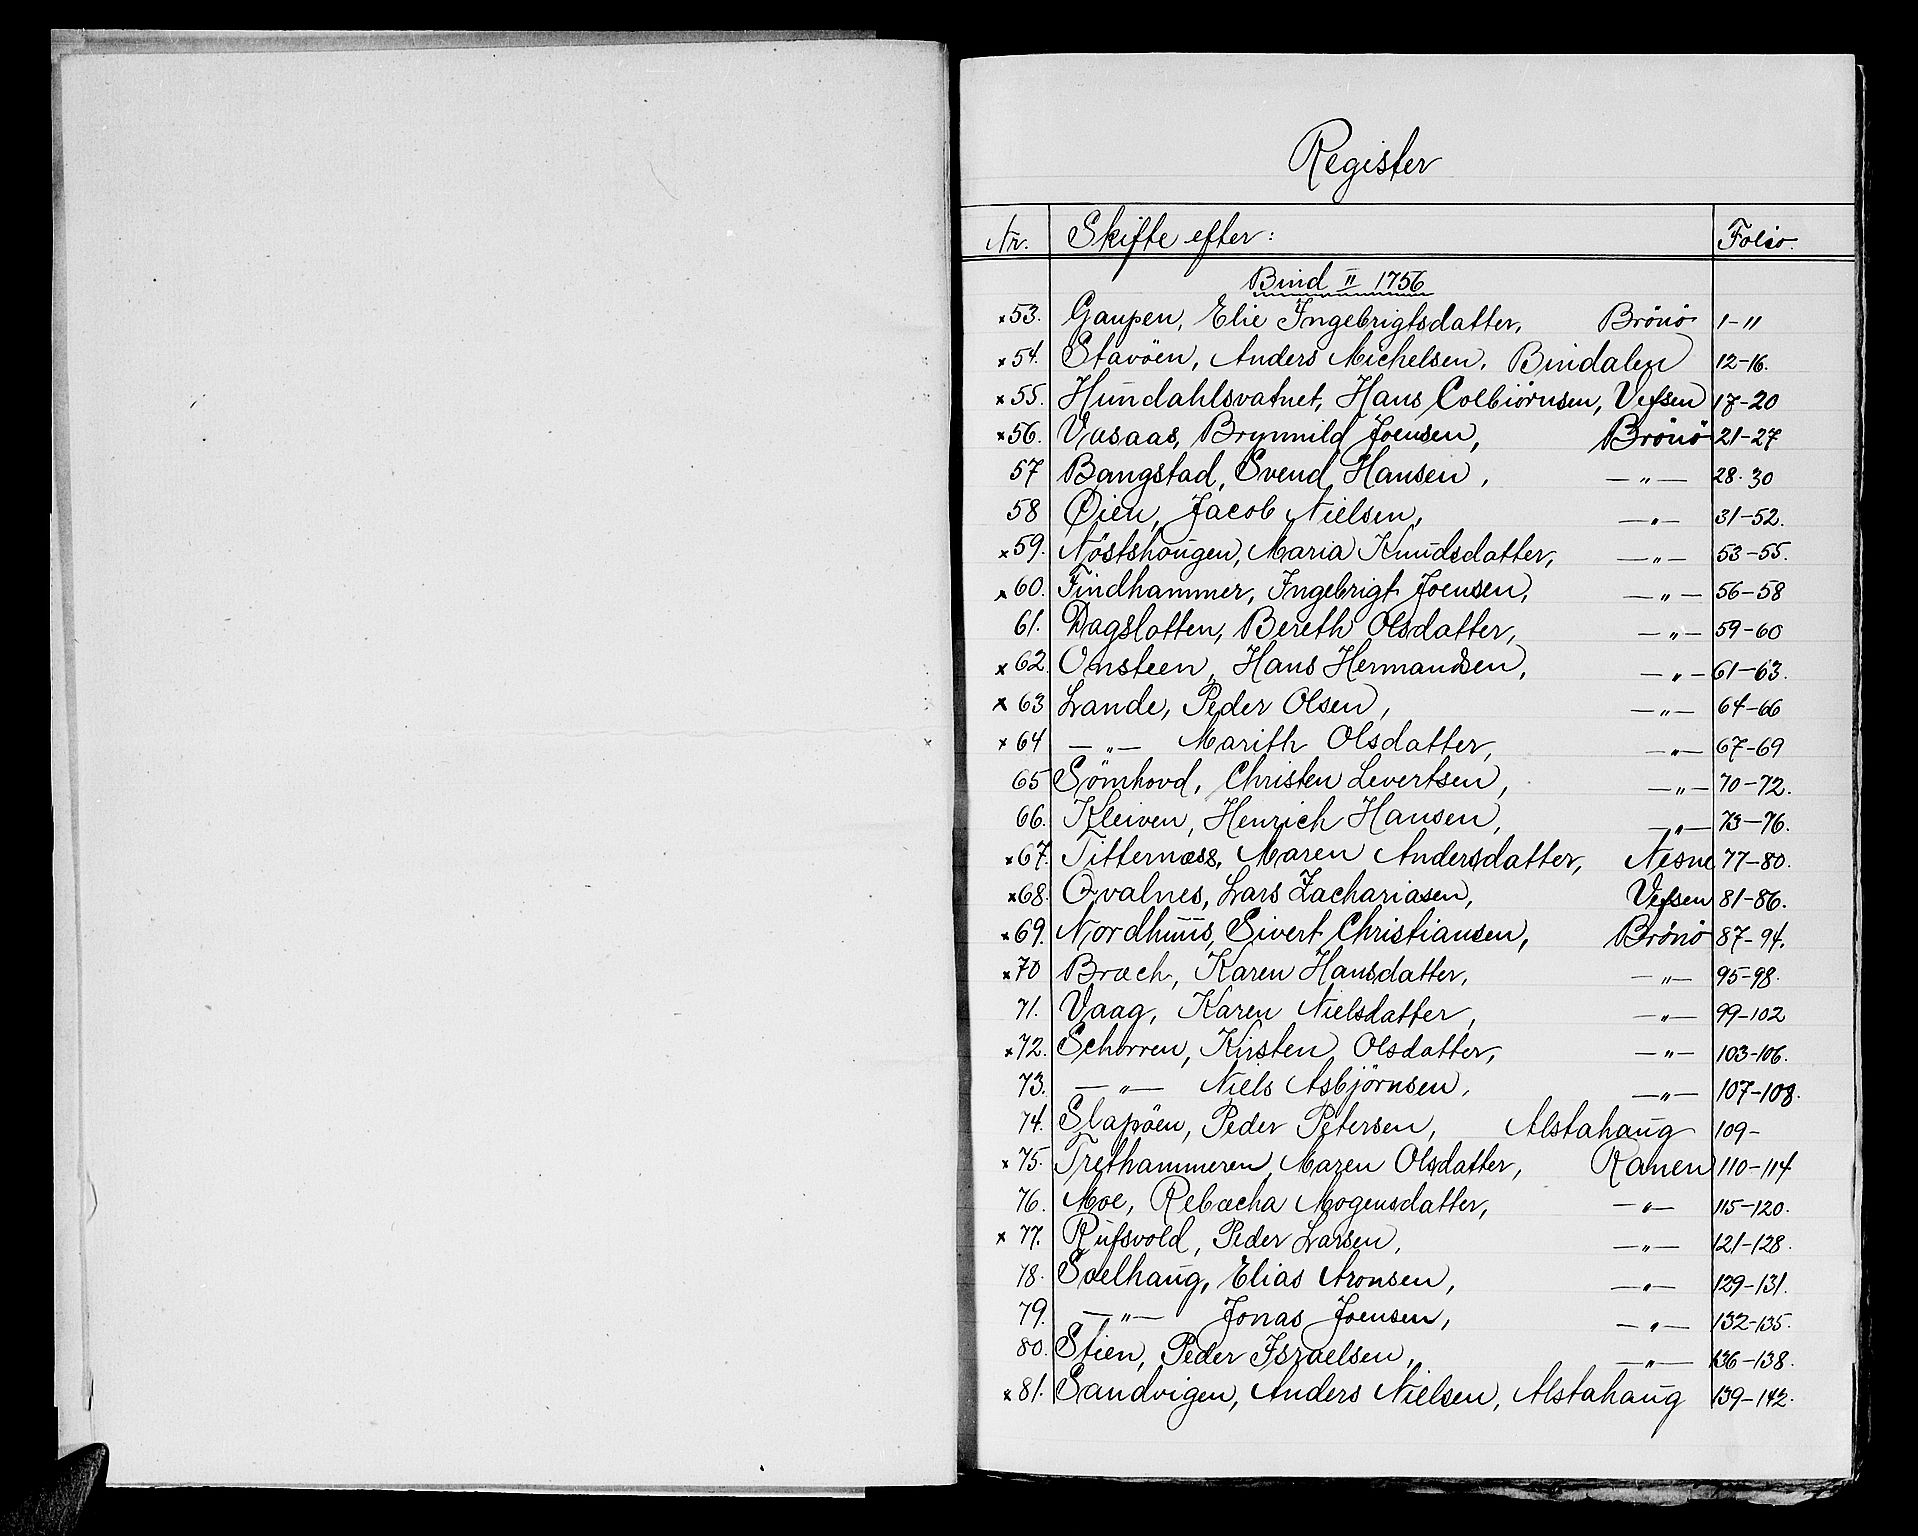 Register
Nr. Skifte efter: Folio.
Bind II 1756
×53. Gaupen, Elie Ingebrigtsdatter, Brönö 1-11
×54. Stavöen, Anders Michelsen, Bindalen 12-16.
×55. Hundahlsvatnet, Hans Colbiörnsen, Vefsen 17-20
×56. Vasaas, Brynnild Joensen, Brönö 21-27
57 Bangstad, Svend Hansen, —„— 28.30
58 Öien, Jacob Nielsen, —„— 31-52.
×59. Nöstshougen, Maria Knudsdatter, —„— 53-55.
×60. Findhammer, Ingebrigt Joensen, —„— 56-58
61. Dagslotten, Bereth Olsdatter, —„— 59-60
×62 Omsteen, Hans Hermandsen, —„— 61-63.
×63 Lande, Peder Olsen, —„— 64-66
×64 —„— Marith Olsdatter, —„— 67-69
65 Sömhovd, Christen Levertsen, —„— 70-72.
66. Kleiven, Henrich Hansen, —„— 73-76.
×67. Titternæss, Maren Andersdatter, Nesne 77-80.
×68. Qvalnes, Lars Zachariasen, Vefsen 81-86.
×69. Nordhuus, Sivert Christiansen, Brönö 87-94.
×70 Bræch, Karen Hansdatter, —„— 95-98.
71. Vaag, Karen Nielsdatter, —„— 99-102
×72. Schorren, Kirsten Olsdatter, —„— 103-106.
73. —„— Niels Asbjörnsen, —„— 107-108.
74. Slapöen, Peder Petersen, Alstahaug 109-
×75. Trethammeren, Maren Olsdatter, Ranen 110-114
76. Moe, Rebæcha Mogensdatter, —„— 115-120.
×77. Rufsvold, Peder Larsen, —„— 121-128.
78. Soelhaug, Elias Aronsen, —„— 129-131.
79. —„— Jonas Joensen, —„— 132-135.
80. Stien, Peder Israelsen, —„— 136-138.
×81. Sandvigen, Anders Nielsen, Alstahaug 139-142.